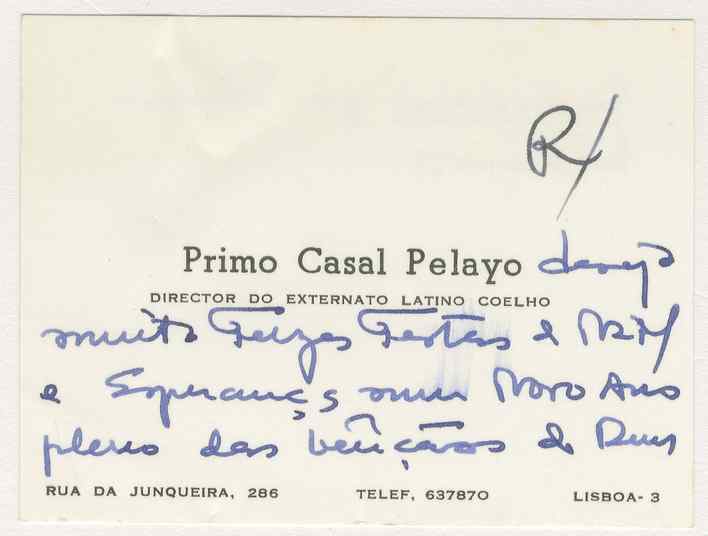 R/
Primo Casal Pelayo deseja
DIRECTOR DO EXTERNATO LATINO COELHO
muito Felizes Festas de Natal
e Esperança num Novo Ano
pleno das bênçãos de Deus
RUA DA JUNQUEIRA, 286 TELEF, 637870 LISBOA-3